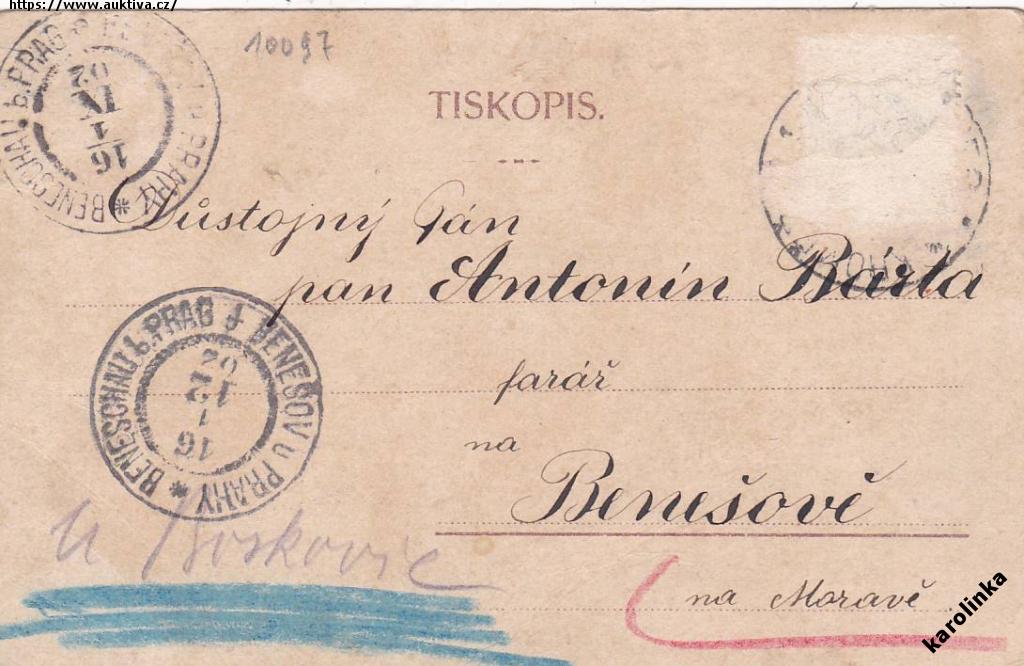 https://www.auktiva.cz/
10097
TISKOPIS.
BENESCHAU b. PRAG BENEŠOV u PRAHY
16
1
02
Důstojný Pán
pan Antonín Bárta
farář
na
Benešově
BENESCHAU b. PRAG BENEŠOV u PRAHY
16
1
12
02
u Boskovic
na Moravě
karolinka